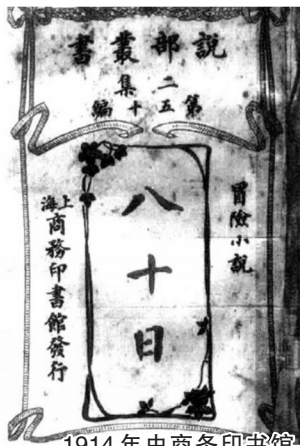 說部叢書
第二集
五十編
冒險小說
八十日
上海
商務印書館發行
1914年由商务印书馆